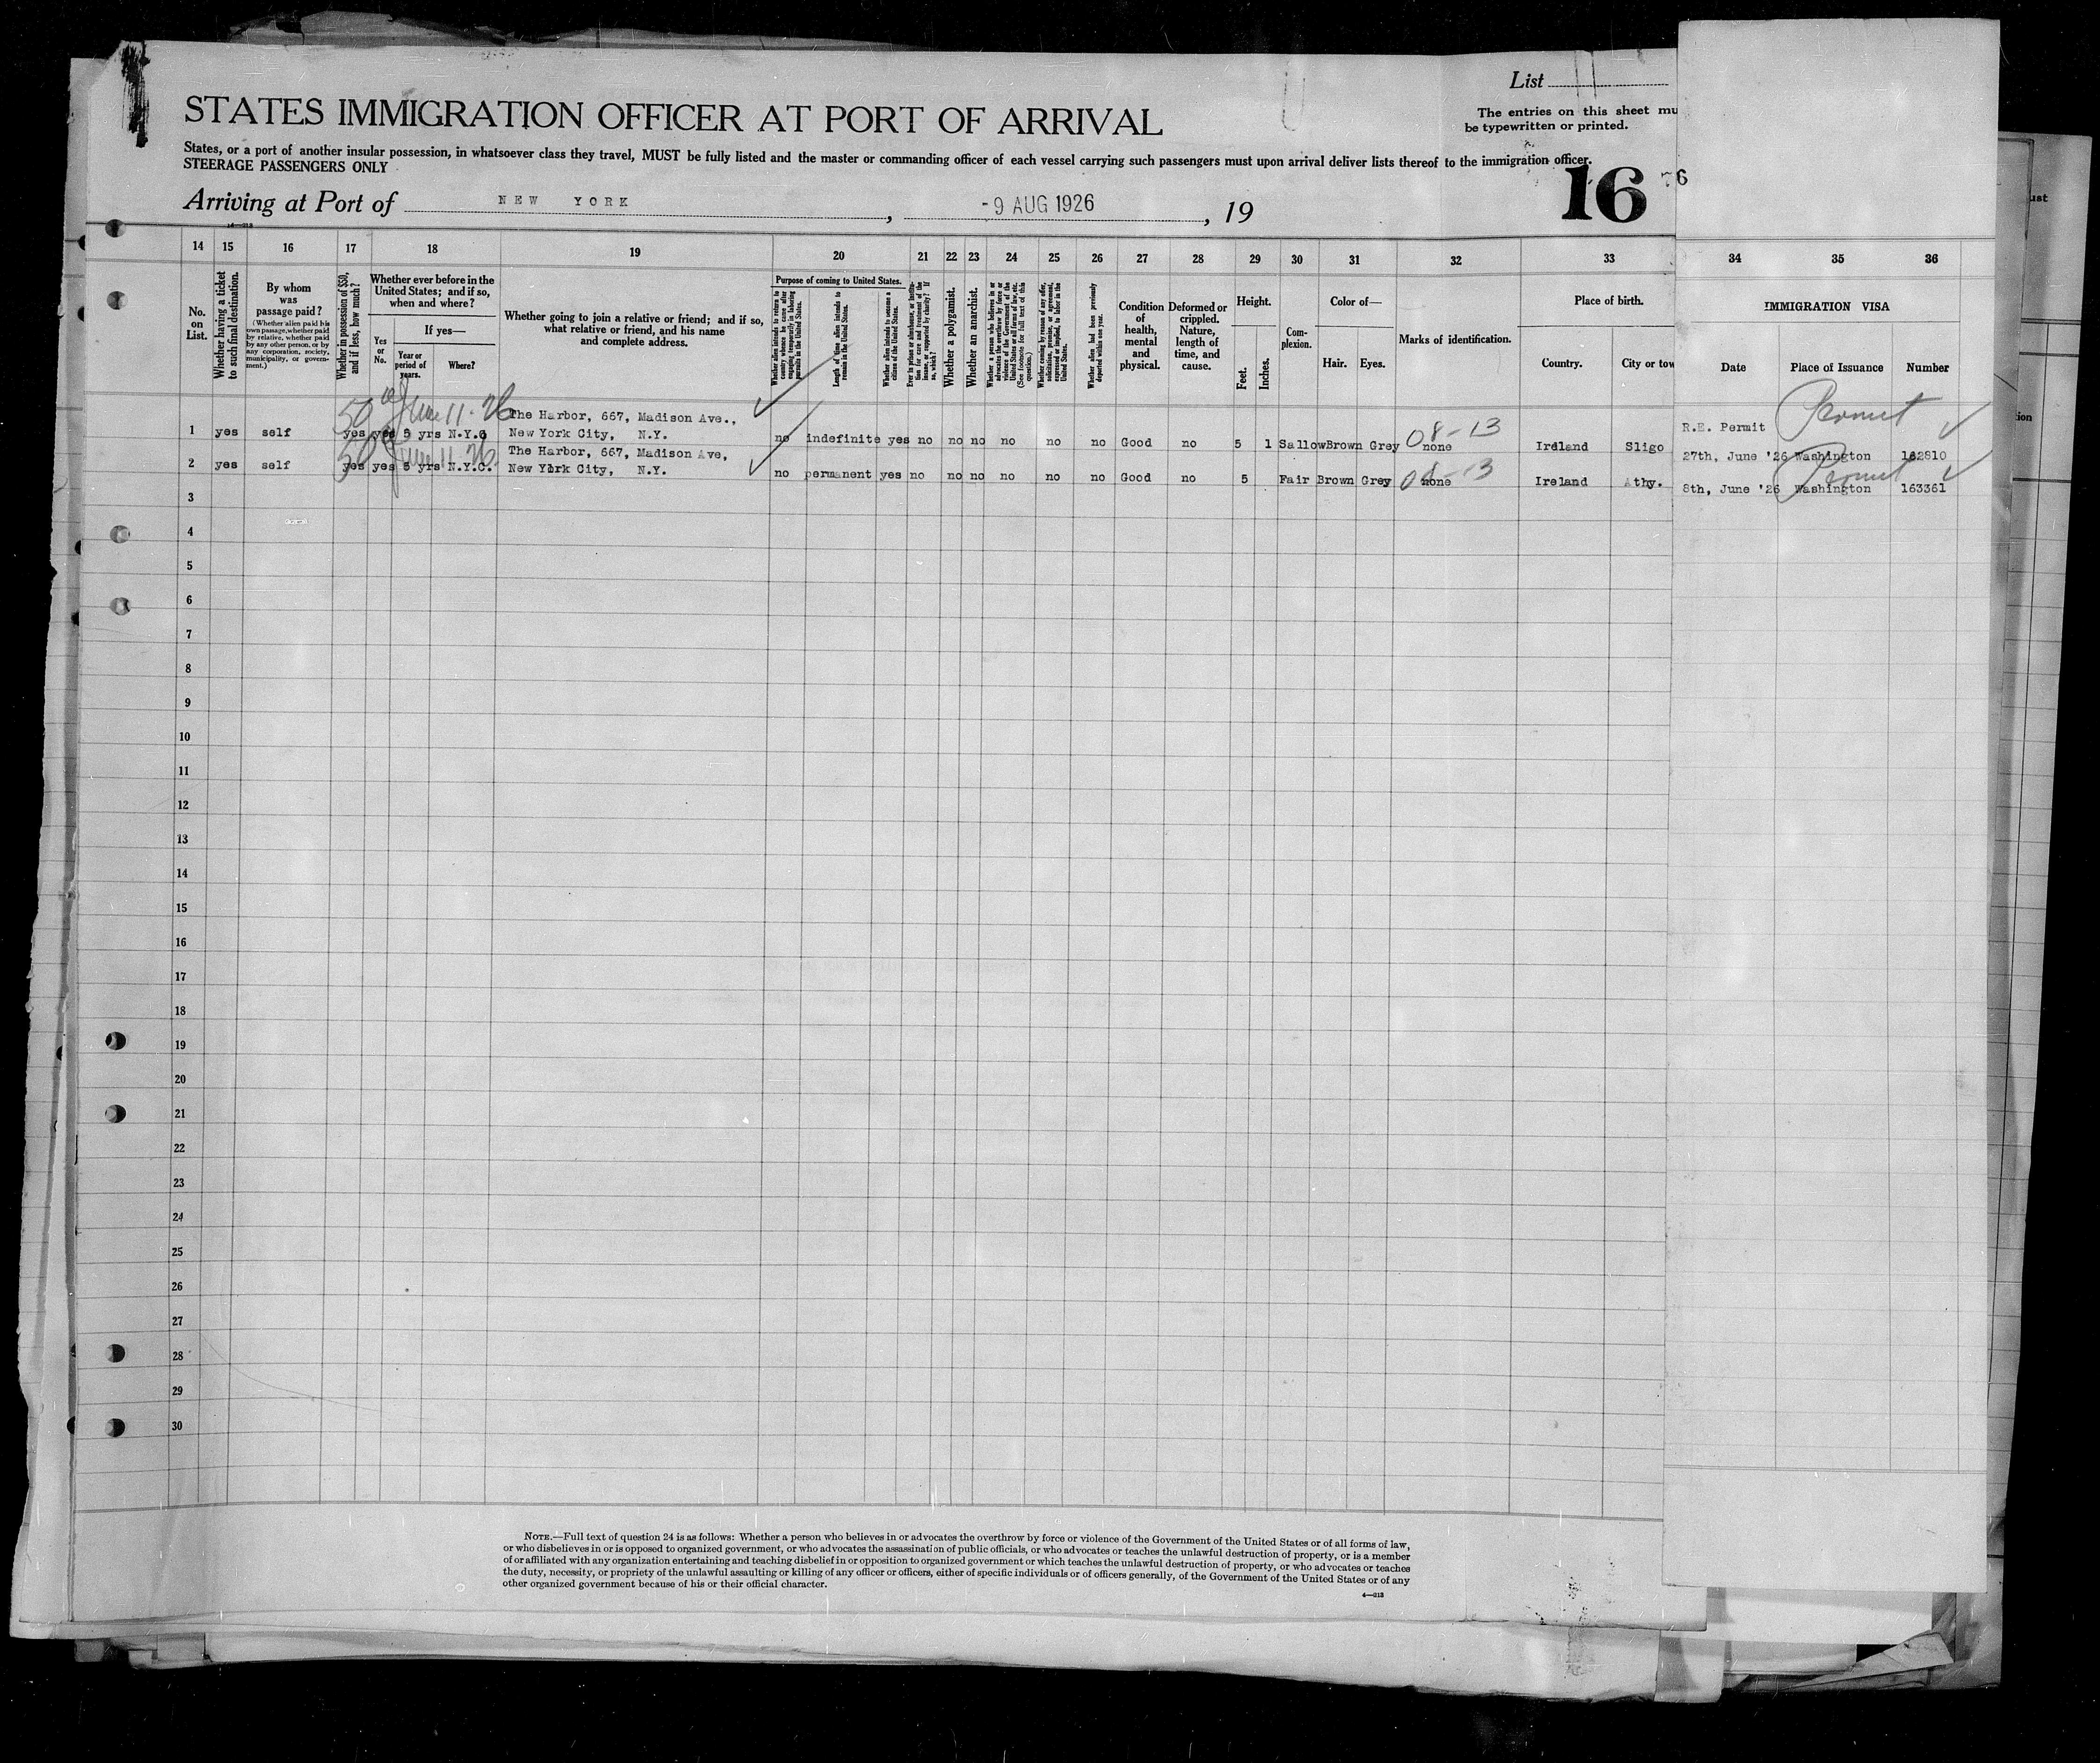 List
STATES IMMIGRATION OFFICER AT PORT OF ARRIVAL
The entries on this sheet mu
be typewritten or printed.
States, or a port of another insular possession, in whatsoever class they travel, MUST be fully listed and the master or commanding officer of each vessel carrying such passengers must upon arrival deliver lists thereof to the immigration officer.
STEERAGE PASSENGERS ONLY
16
Arriving at Port of NEW YORK, -9 AUG 1926, 19
14 15 16 17 18 19 20 21 22 23 24 25 26 27 28 29 30 31 32 33 34 35 36
No. on List.
Whether having a ticket to such final destination.
By whom was passage paid?
(Whether alien paid his own passage, whether paid by relative, whether paid by any other person, or by any corporation, society, municipality, or government.)
Whether in possession of $50, and if less, how much?
Whether ever before in the United States; and if so, when and where?
Yes or No.
If yes—
Year or period of years.
Where?
Whether going to join a relative or friend; and if so, what relative or friend, and his name and complete address.
Purpose of coming to United States.
Whether alien intends to return to country whence he came after engaging temporarily in laboring pursuits in the United States.
Length of time alien intends to remain in the United States.
Whether alien intends to become a citizen of the United States.
Ever in prison or almshouse, or institution for care and treatment of the insane, or supported by charity? If so, which?
Whether a polygamist.
Whether an anarchist.
Whether a person who believes in or advocates the overthrow by force or violence of the Government of the United States or all forms of law, etc. (See footnote for full text of this question.)
Whether coming by reason of any offer, solicitation, promise, or agreement, expressed or implied, to labor in the United States.
Whether alien had been previously deported within one year.
Condition of health, mental and physical.
Deformed or crippled. Nature, length of time, and cause.
Height.
Feet. Inches.
Complexion.
Color of—
Hair. Eyes.
Marks of identification.
Place of birth.
Country. City or tow
IMMIGRATION VISA
Date Place of Issuance Number
50 June 11 - 26 The Harbor, 667, Madison Ave., 08-13 R.E. Permit Permit
1 yes self yes yes 5 yrs N.Y.C New York City, N.Y. no indefinite yes no no no no no no Good no 5 1 Sallow Brown Grey none Ireland Sligo 27th, June '26 Washington 162810
50 June 11. 26 The Harbor, 667, Madison Ave, 08-13 Permit
2 yes self yes yes 5 yrs N.Y.C. New York City, N.Y. no permanent yes no no no no no no Good no 5 Fair Brown Grey none Ireland Athy. 8th, June '26 Washington 163361
3
4
5
6
7
8
9
10
11
12
13
14
15
16
17
18
19
20
21
22
23
24
25
26
27
28
29
30
NOTE.—Full text of question 24 is as follows: Whether a person who believes in or advocates the overthrow by force or violence of the Government of the United States or of all forms of law,
or who disbelieves in or is opposed to organized government, or who advocates the assassination of public officials, or who advocates or teaches the unlawful destruction of property, or is a member
of or affiliated with any organization entertaining and teaching disbelief in or opposition to organized government or which teaches the unlawful destruction of property, or who advocates or teaches
the duty, necessity, or propriety of the unlawful assaulting or killing of any officer or officers, either of specific individuals or of officers generally, of the Government of the United States or of any
other organized government because of his or their official character.